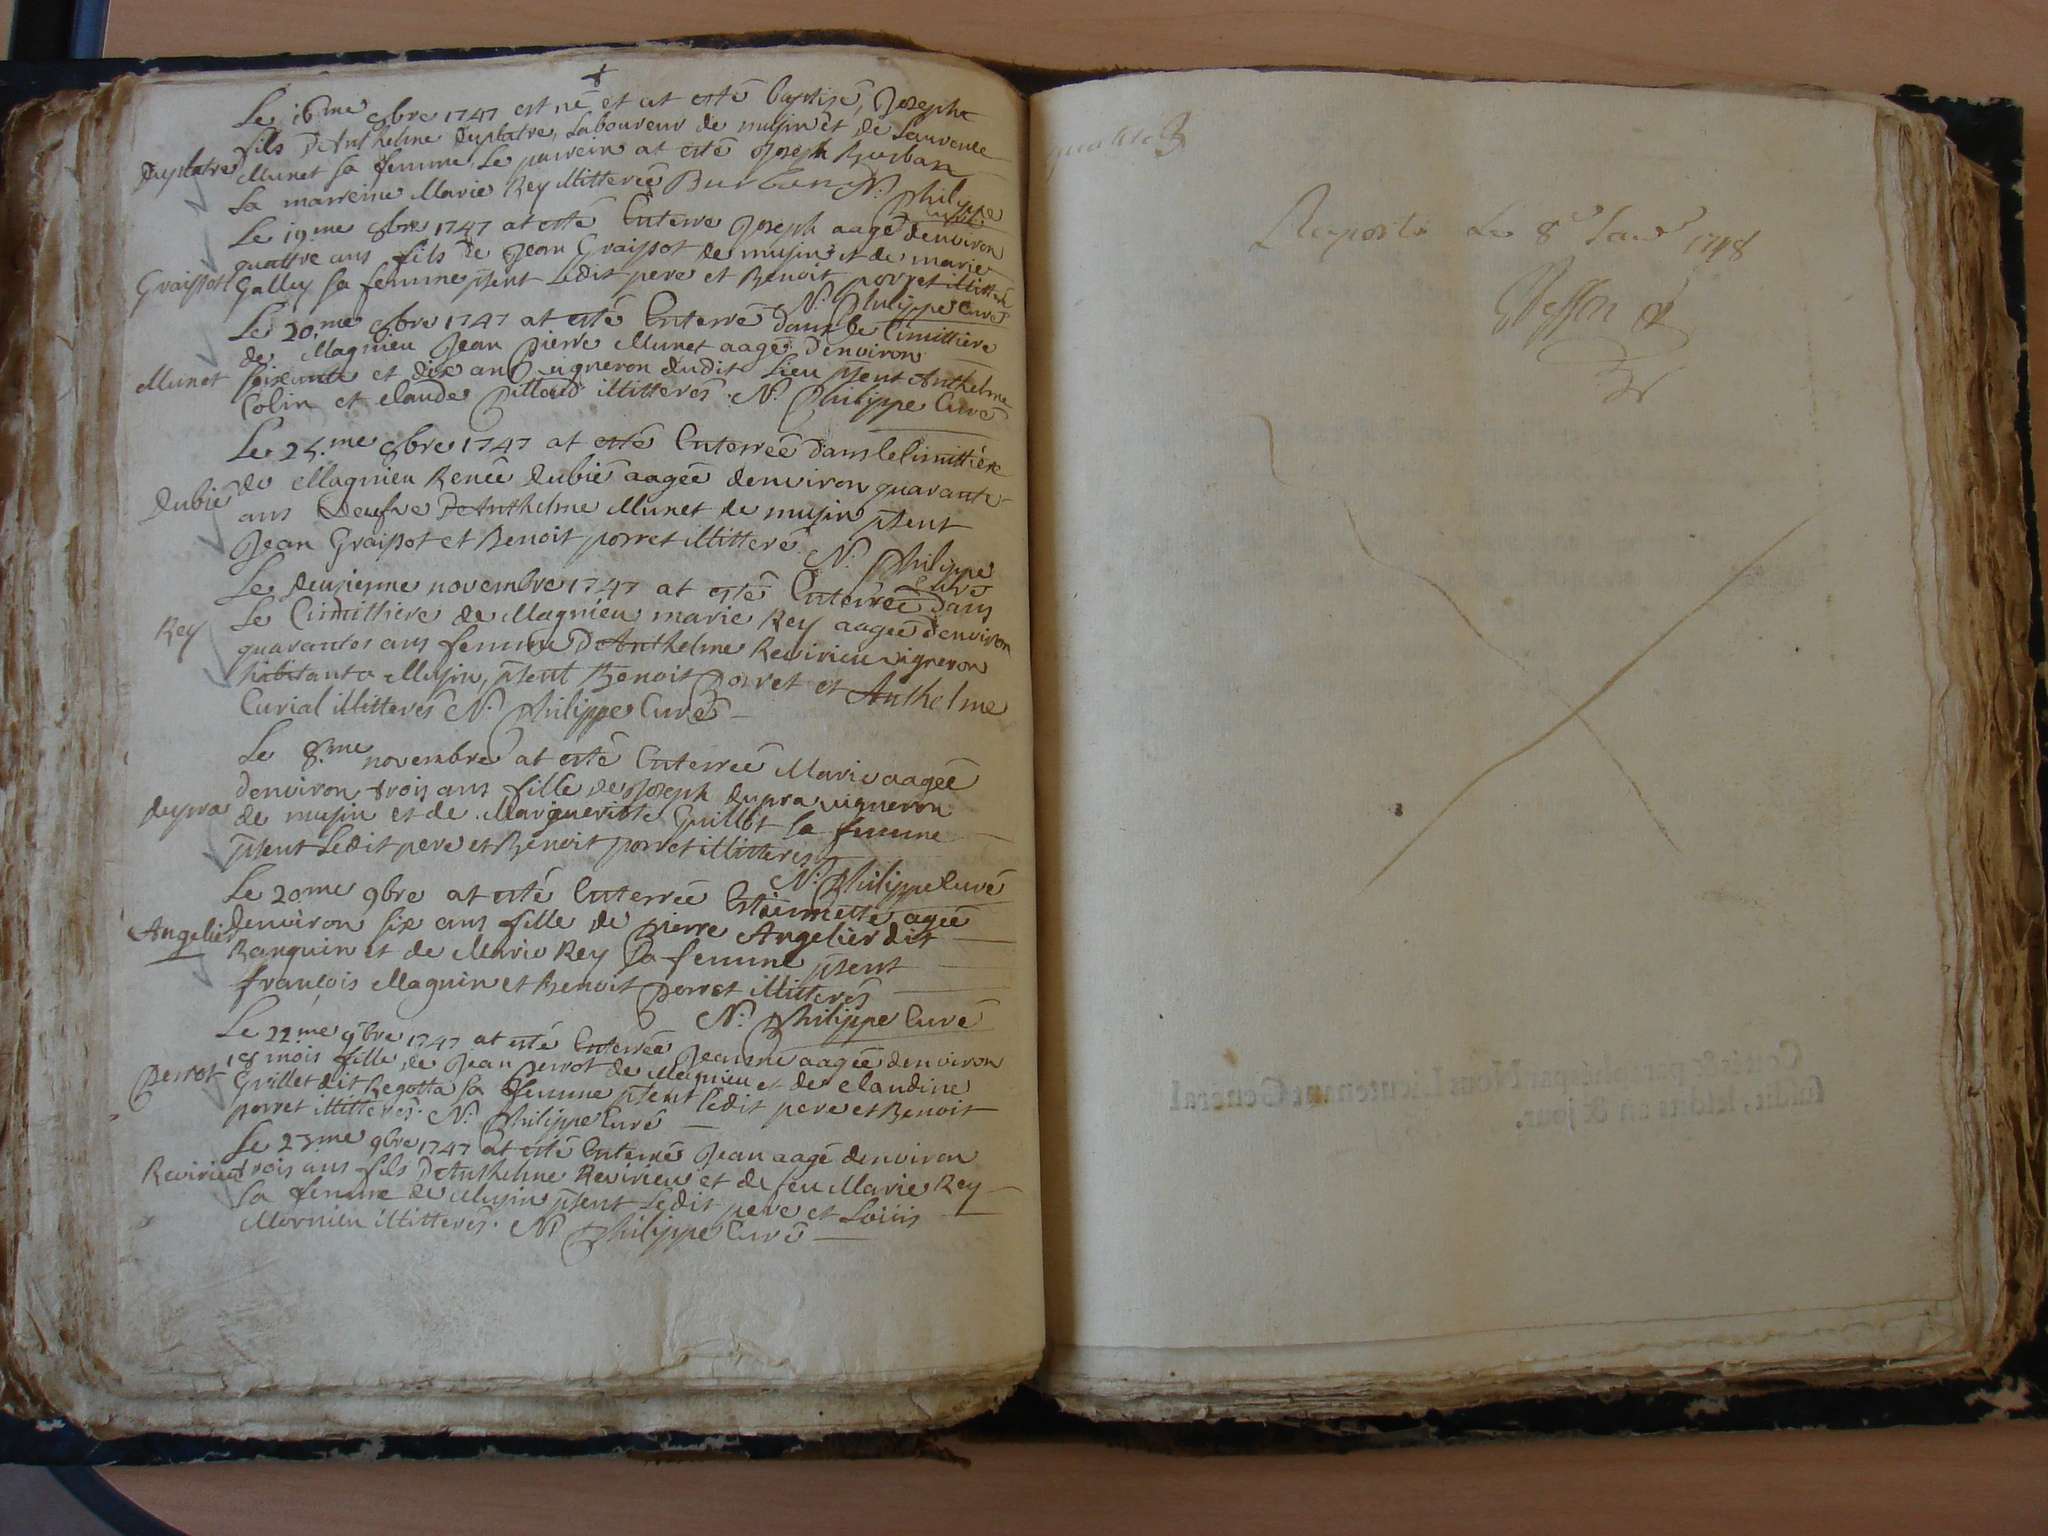 Le 16.me 8bre 1747 est né et at esté baptisé, Joseph
fils D'Anthelme duplatre, Laboureur de musin et de Laurence
duplatre Munet sa femme, Le parrein at esté Joseph Burban
La marreine Marie Rey illitereé Burban N. Philippe
curé
Le 19.me 8bre 1747 at esté Enterré Joseph aagé denviron
quattre ans fils de Jean Graissot de musin et de marie
Graissot Gallay sa femme pñt Ledit pere et Benoit porret
N. Philippe Curé
Le 20.me 8bre 1747 at esté Enterré dans le Cimittiere
de Magnieu Jean Pierre Munet aagé d'environ
Munet soixante et dix ans vigneron dudit Lieu pñt Anthelme
Colin et claude illitterés. N. Philippe Curé
Le 25.me 8bre 1747 at esté Enterreé dans le Cimittiere
de Magnieu Reneé dubié aageé denviron quarante
dubié ans veufve D'Anthelme Munet de musin pñt
Jean Graissot et Benoit porret illitteré
N. Philippe
Curé
Le deuxieme novembre 1747 at esté Enterreé dans
Le Cimittiere de Magnieu marie Rey aageé d'environ
Rey quarantes ans femme D'Anthelme Revirieu vigneron
habitant a Musin, pñt Benoit porret et Anthelme
Curial illitterés N. Philippe Curé
Le 8.me novembre at esté Enterreé Marie aageé
denviron trois ans fille de Joseph dupra vigneron
dupra de musin et de Margueritte Guillot sa femme
pñt Ledit pere et Benoit porret illitterés
N. Philippe Curé
Le 20.me 9bre at esté Enterreé Estiennette ageé
Angelier denviron six ans fille de pierre Angelier dit
Ranquin et de Marie Rey sa femme pñt
françois Magnin et Benoit porret illitterés
N. Philippe Curé
Le 22.me 9bre 1747 at esté Enterreé Jeanne aageé denviron
18 mois fille de Jean perrot de Magnieu et de claudine
perrot Grillet dit Regotta sa femme pñt Ledit pere et Benoit
porret illitterés. N. Philippe Curé
Le 23.me 9bre 1747 at esté Enterré Jean aagé denviron
Revirieu trois ans fils D'Anthelme Revirieu et de feu Marie Rey
sa femme de Musin pñt Ledit pere et Loüis
Mornieu illitterés. N. Philippe Curé
Raporté Le 8e Janv 1748